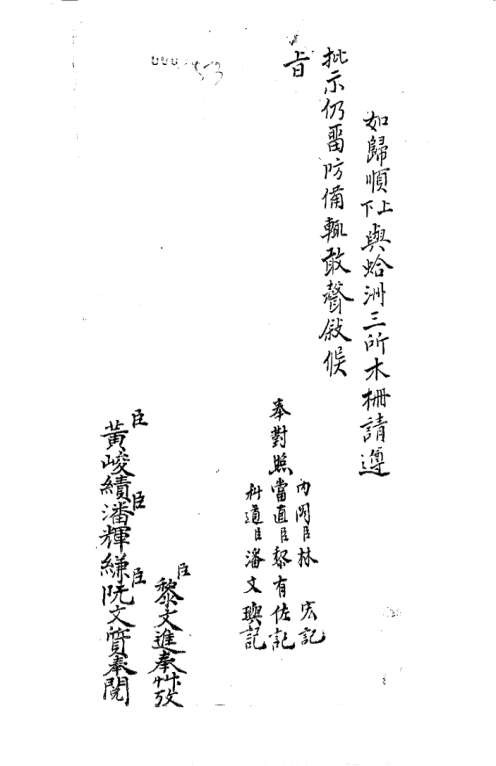 如歸順上下與蛤洲三所木柵請遵
批示仍畱防備輒敢聲敍候
旨
內閣臣林宏記
奉對照當直臣黎有佐記
科道臣潘文璵記
臣黎文進奉艸攷
臣黃峻績臣潘輝縑臣阮文質奉閱
53